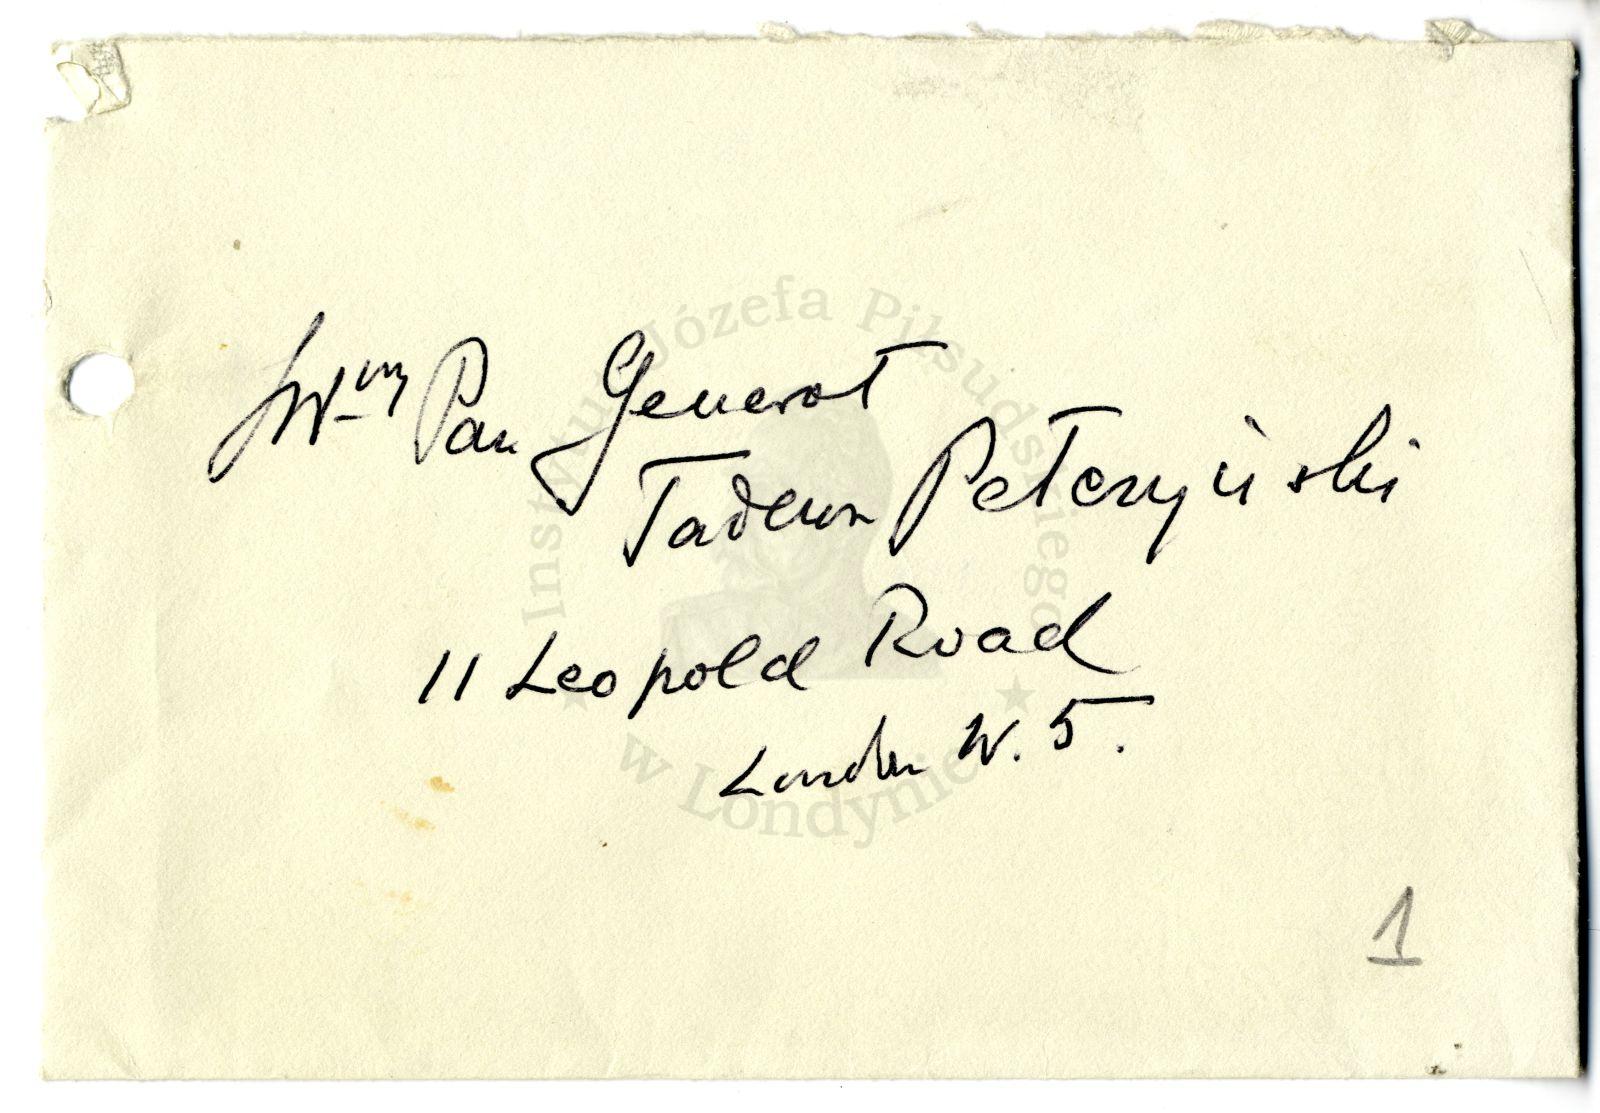 JWny Pan Generał
Tadeusz Pełczyński
11 Leopold Road
London W. 5.
1
Instytut Józefa Piłsudskiego
w Londynie